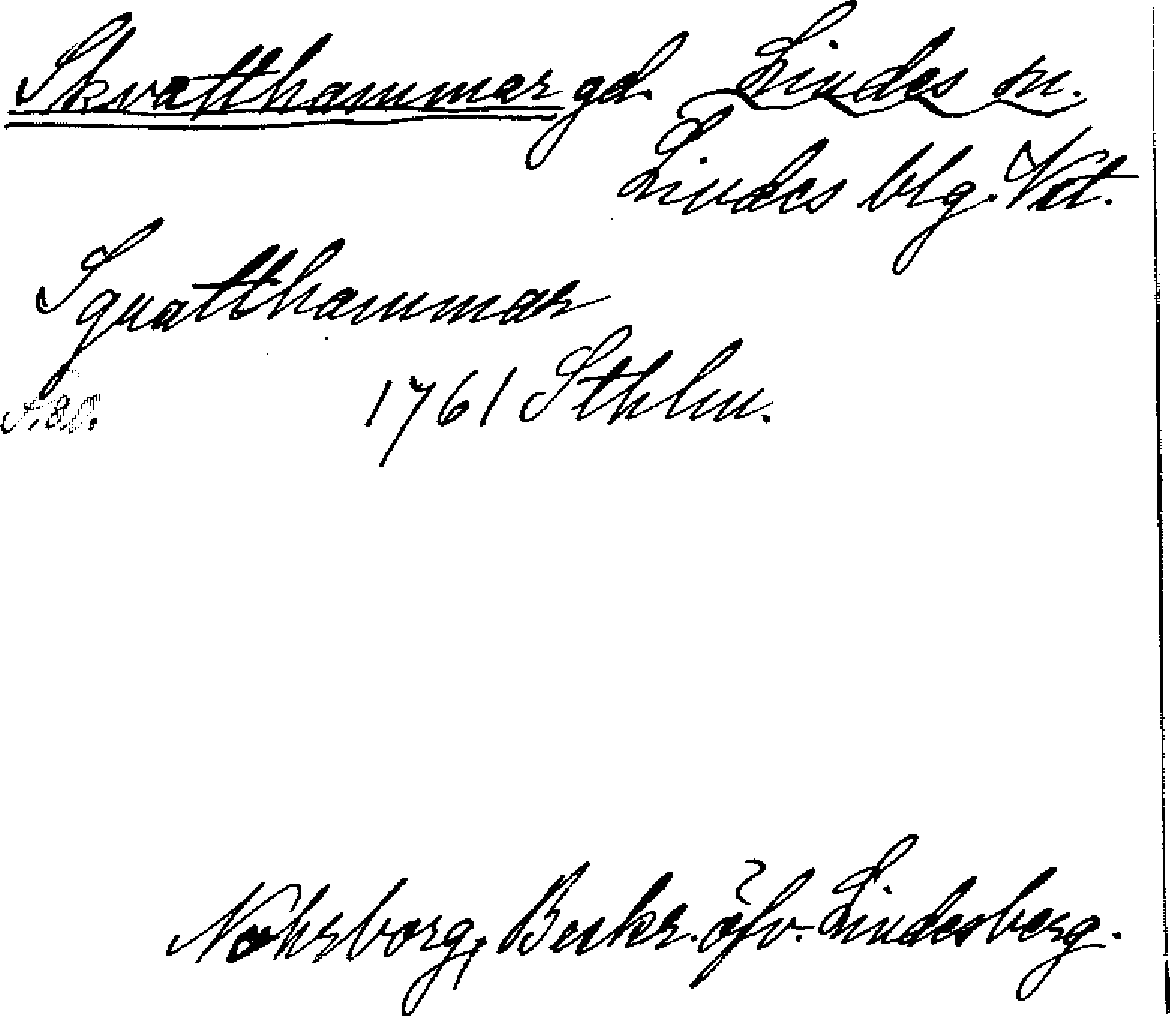 Skvatthammar gd. Lindes sn.
Lindes blg. Vst.
Sqvatthammar
1761 Sthlm.
Nohrborg, Beskr. öfv. Lindesberg.